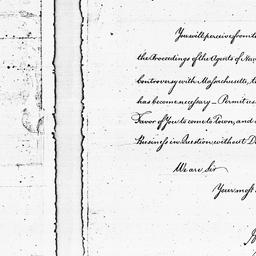 You will perceive from th
the Proceedings of the Agents of New
Controversy with Massachusetts, t
has become necessary — Permit us
Favor of You to come to Town, and
Business in Question without D
We are Sir
Your mos